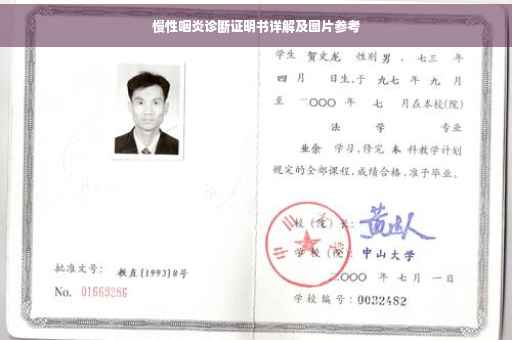 慢性咽炎诊断证明书详解及图片参考
学生 贺文龙 性别 男 , 七三 年
四 月 日生,于 九七 年 九 月
至 二〇〇〇 年 七 月在本校(院)
法 学 专业
业余 学习,修完 本 科教学计划
规定的全部课程,成绩合格,准予毕业。
校(院)长:
学校(院): 中山大学
二〇〇〇 年 七 月 一 日
学校编号: 0032482
批准文号: 教直(1993)8号
No. 01663286